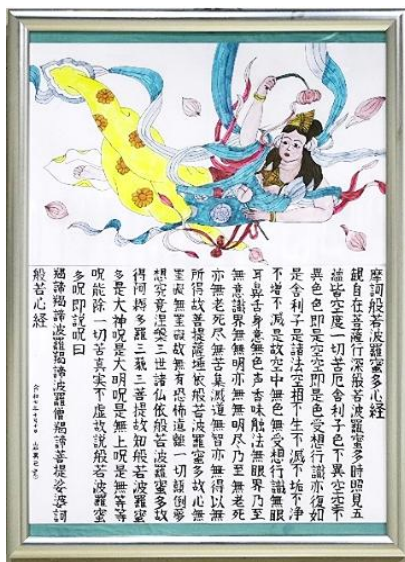 摩訶般若波羅蜜多心経
観自在菩薩行深般若波羅蜜多時照見五
蘊皆空度一切苦厄舎利子色不異空空不
異色色即是空空即是色受想行識亦復如
是舎利子是諸法空相不生不滅不垢不浄
不増不減是故空中無色無受想行識無眼
耳鼻舌身意無色声香味触法無眼界乃至
無意識界無無明亦無無明尽乃至無老死
亦無老死尽無苦集滅道無智亦無得以無
所得故菩提薩埵依般若波羅蜜多故心無
罣礙無罣礙故無有恐怖遠離一切顛倒夢
想究竟涅槃三世諸仏依般若波羅蜜多故
得阿耨多羅三藐三菩提故知般若波羅蜜
多是大神呪是大明呪是無上呪是無等等
呪能除一切苦真実不虚故説般若波羅蜜
多呪即説呪曰
羯諦羯諦波羅羯諦波羅僧羯諦菩提娑婆訶
般若心経